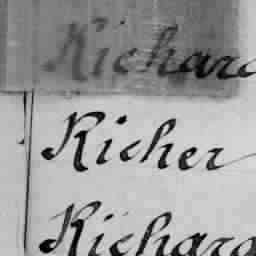 Richard
Richer
Richard